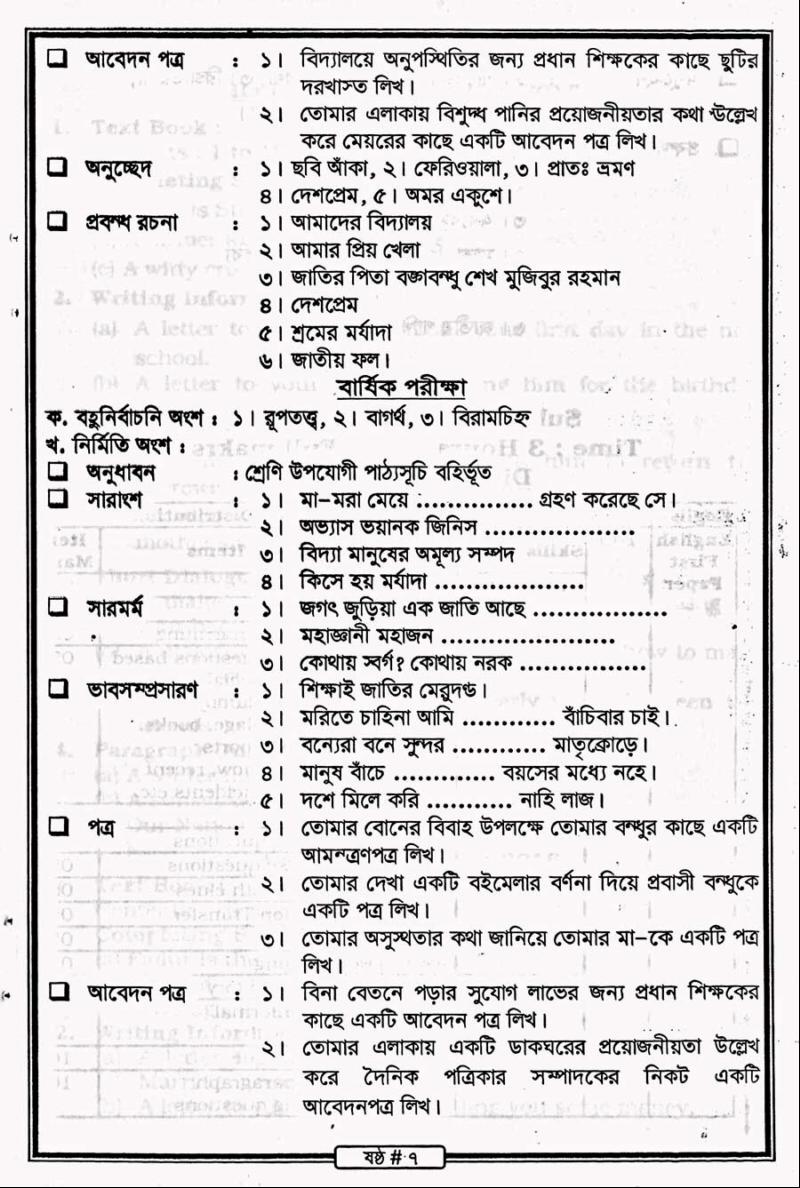 ❑ আবেদন পত্র : ১। বিদ্যালয়ে অনুপস্থিতির জন্য প্রধান শিক্ষকের কাছে ছুটির
দরখাস্ত লিখ।
২। তোমার এলাকায় বিশুদ্ধ পানির প্রয়োজনীয়তার কথা উল্লেখ
করে মেয়রের কাছে একটি আবেদন পত্র লিখ।
❑ অনুচ্ছেদ : ১। ছবি আঁকা, ২। ফেরিওয়ালা, ৩। প্রাতঃ ভ্রমণ
৪। দেশপ্রেম, ৫। অমর একুশে।
❑ প্রবন্ধ রচনা : ১। আমাদের বিদ্যালয়
২। আমার প্রিয় খেলা
৩। জাতির পিতা বঙ্গবন্ধু শেখ মুজিবুর রহমান
৪। দেশপ্রেম
৫। শ্রমের মর্যাদা
৬। জাতীয় ফল।
বার্ষিক পরীক্ষা
ক. বহুনির্বাচনি অংশ : ১। রূপতত্ত্ব, ২। বাগর্থ, ৩। বিরামচিহ্ন
খ. নির্মিতি অংশ :
❑ অনুধাবন : শ্রেণি উপযোগী পাঠ্যসূচি বহির্ভূত
❑ সারাংশ : ১। মা-মরা মেয়ে ............... গ্রহণ করেছে সে।
২। অভ্যাস ভয়ানক জিনিস ...................
৩। বিদ্যা মানুষের অমূল্য সম্পদ
৪। কিসে হয় মর্যাদা ...................
❑ সারমর্ম : ১। জগৎ জুড়িয়া এক জাতি আছে .................
২। মহাজ্ঞানী মহাজন ......................
৩। কোথায় স্বর্গ? কোথায় নরক ................
❑ ভাবসম্প্রসারণ : ১। শিক্ষাই জাতির মেরুদণ্ড।
২। মরিতে চাহিনা আমি ............ বাঁচিবার চাই।
৩। বন্যেরা বনে সুন্দর ............ মাতৃক্রোড়ে।
৪। মানুষ বাঁচে ............. বয়সের মধ্যে নহে।
৫। দশে মিলে করি ........... নাহি লাজ।
❑ পত্র : ১। তোমার বোনের বিবাহ উপলক্ষে তোমার বন্ধুর কাছে একটি
আমন্ত্রণপত্র লিখ।
২। তোমার দেখা একটি বইমেলার বর্ণনা দিয়ে প্রবাসী বন্ধুকে
একটি পত্র লিখ।
৩। তোমার অসুস্থতার কথা জানিয়ে তোমার মা-কে একটি পত্র
লিখ।
❑ আবেদন পত্র : ১। বিনা বেতনে পড়ার সুযোগ লাভের জন্য প্রধান শিক্ষকের
কাছে একটি আবেদন পত্র লিখ।
২। তোমার এলাকায় একটি ডাকঘরের প্রয়োজনীয়তা উল্লেখ
করে দৈনিক পত্রিকার সম্পাদকের নিকট একটি
আবেদনপত্র লিখ।
ষষ্ঠ # ৭